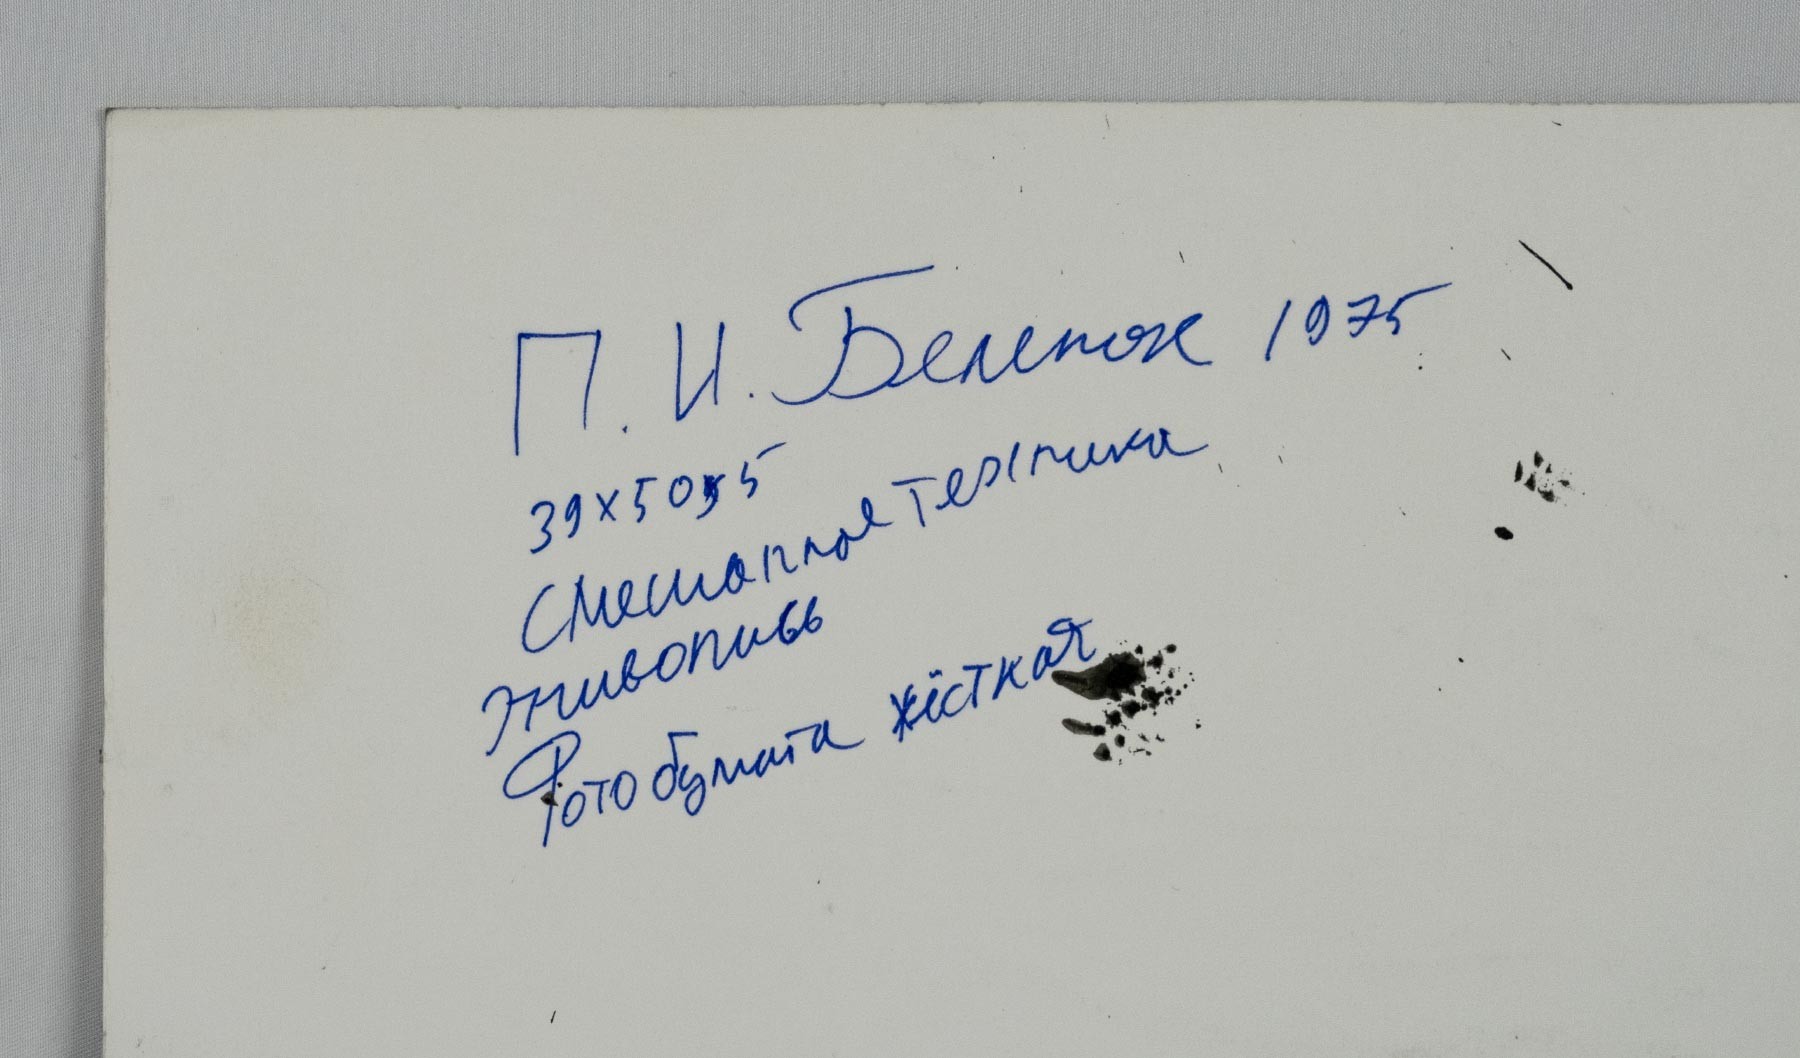 П. И. Беленок 1975
39х50,5
Смешанная техника
живопись
Фотобумага жёсткая